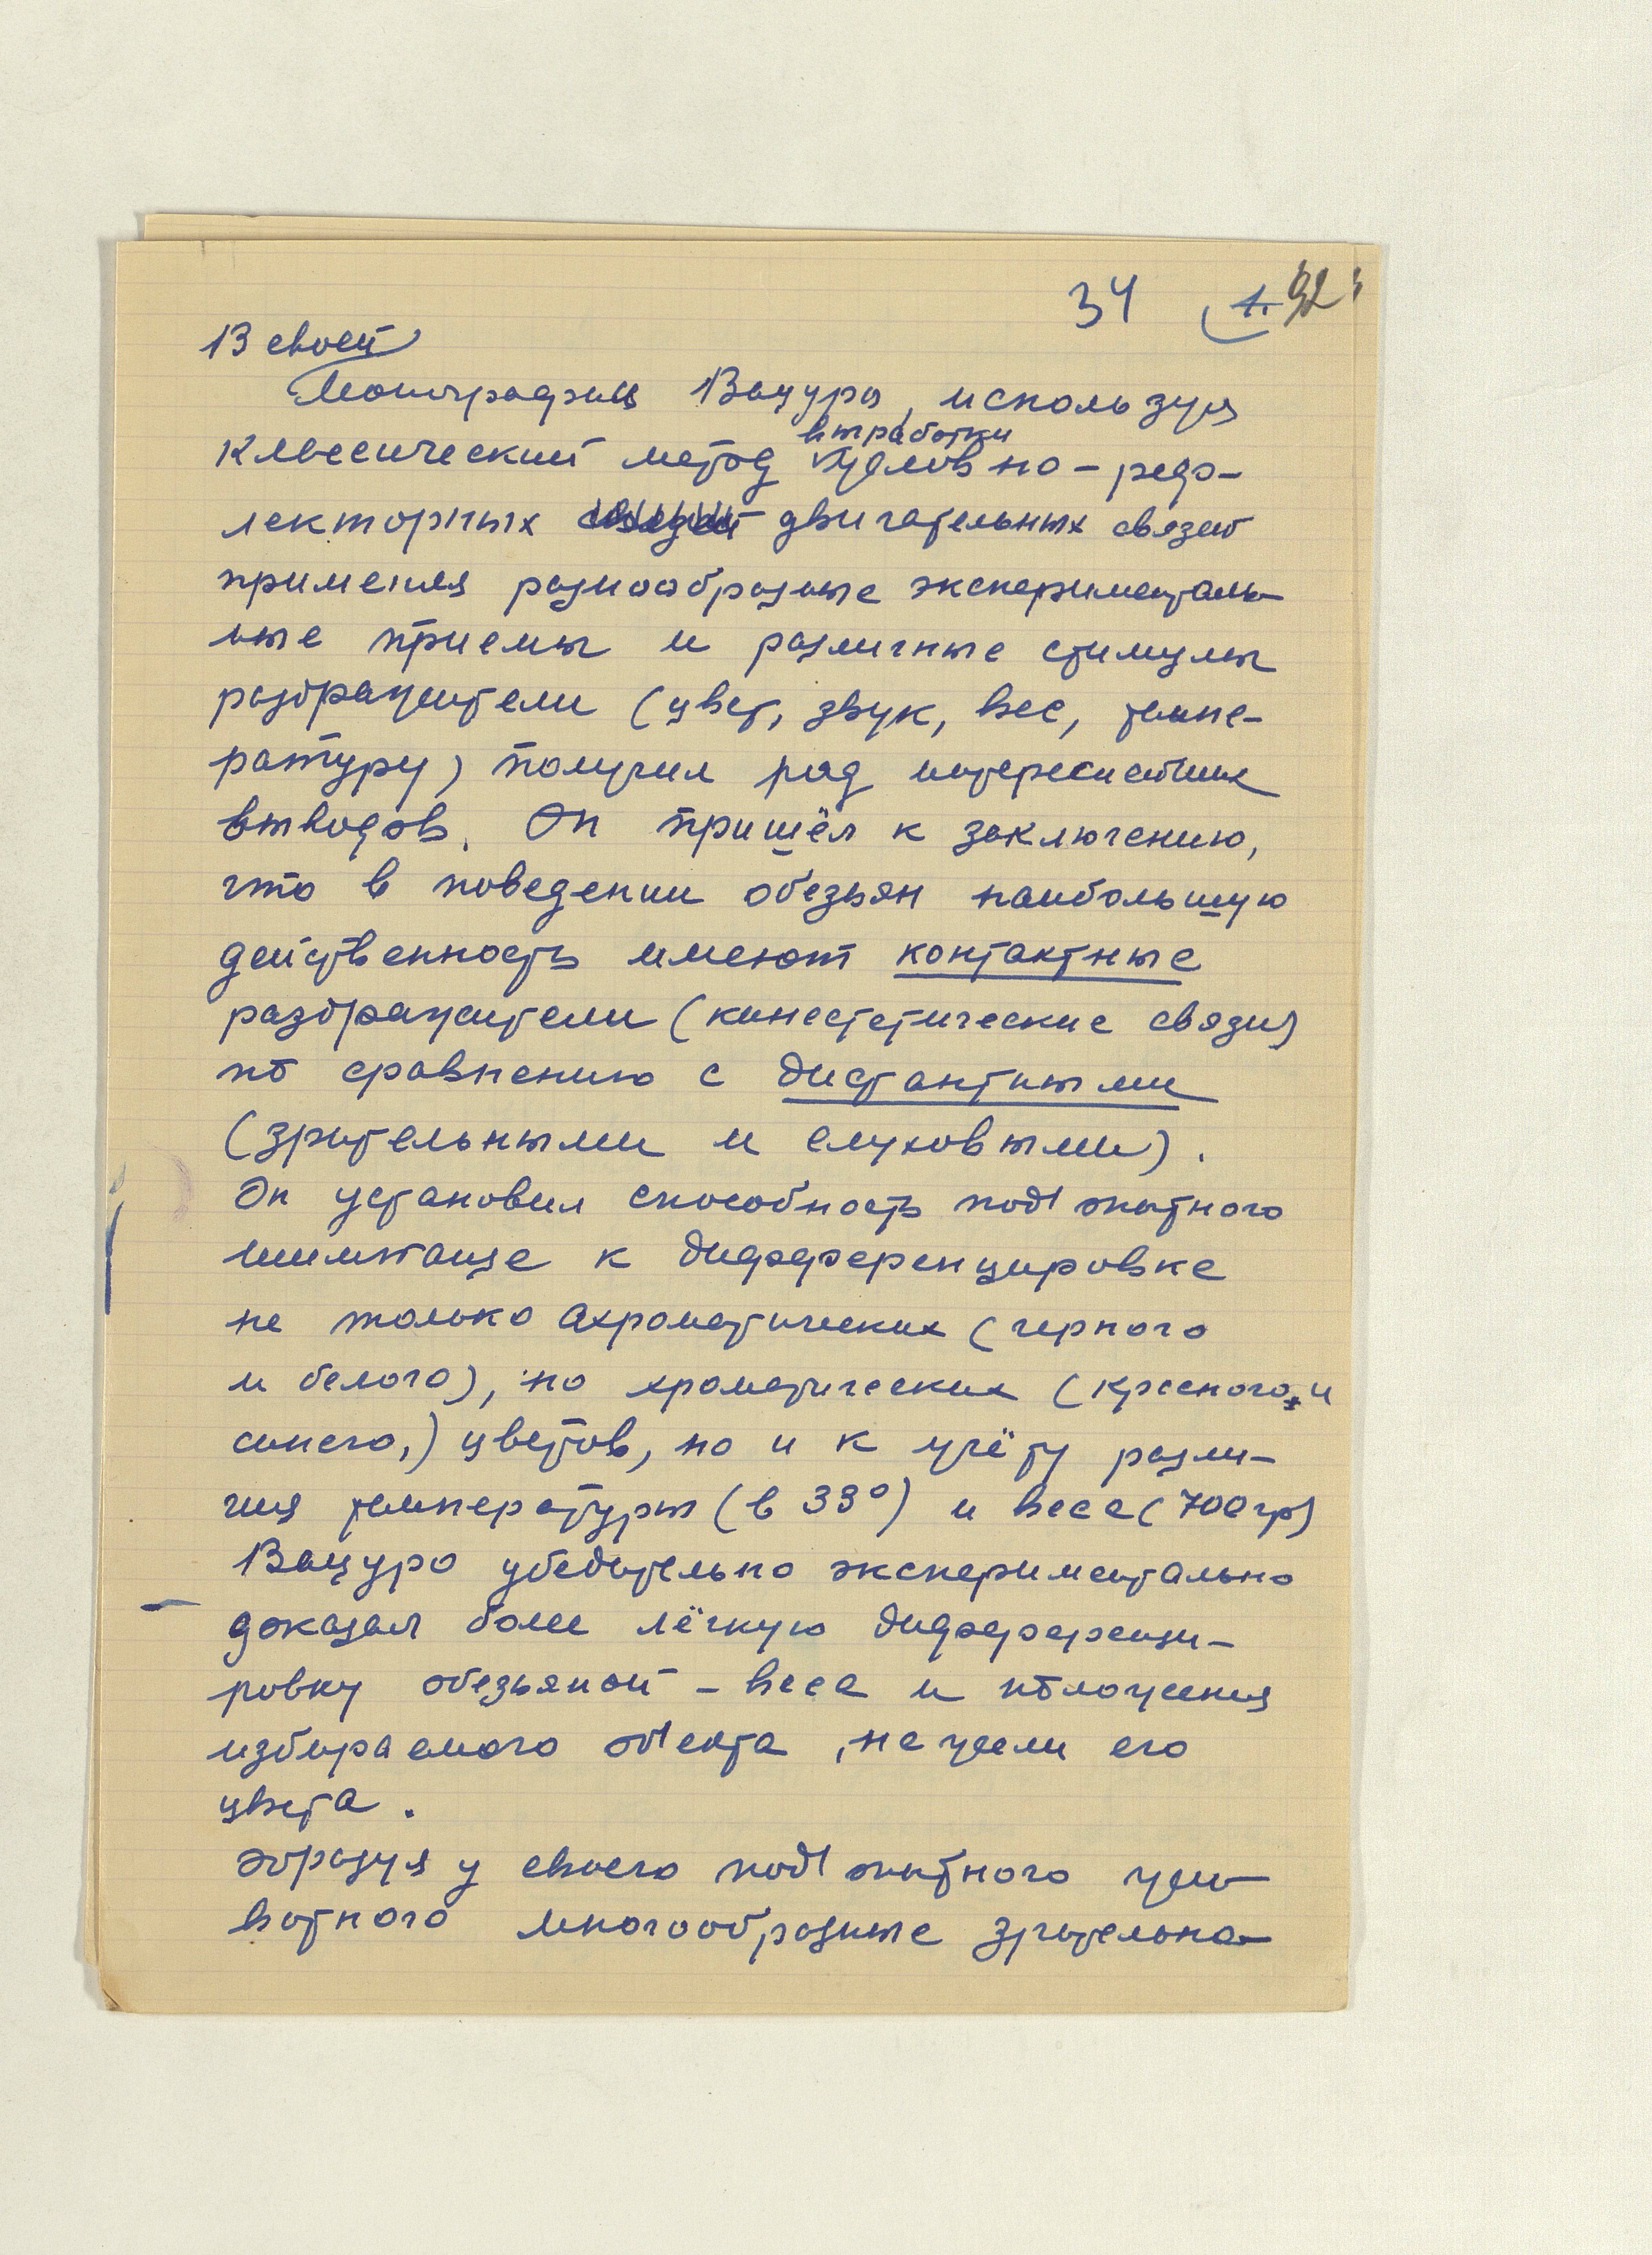 34 1. 92
В своей
Монографии Вацуро, используя
классический метод выработки условно-реф-
лекторных двигательных связей
применяя разнообразные эксперименталь-
ные приемы и различные стимулы
раздражители (цвет, звук, вес, темпе-
ратуру) получил ряд интереснейших
выводов. Он пришёл к заключению,
что в поведении обезьян наибольшую
действенность имеют контактные
раздражители (кинестетические связи)
по сравнению с дистантными
(зрительными и слуховыми).
Он установил способность под'опытного
шимпанзе к дифференцировке
не только ахроматических (черного
и белого), но хроматических (красного и
синего,) цветов, но и к учёту разли-
чия температуры (в 33°) и веса (700 гр)
Вацуро убедительно экспериментально
доказал более лёгкую дифференци-
ровку обезьяной - веса и положения
избираемого об'екта, нежели его
цвета.
Образуя у своего под'опытного жи-
вотного многообразные зрительно-